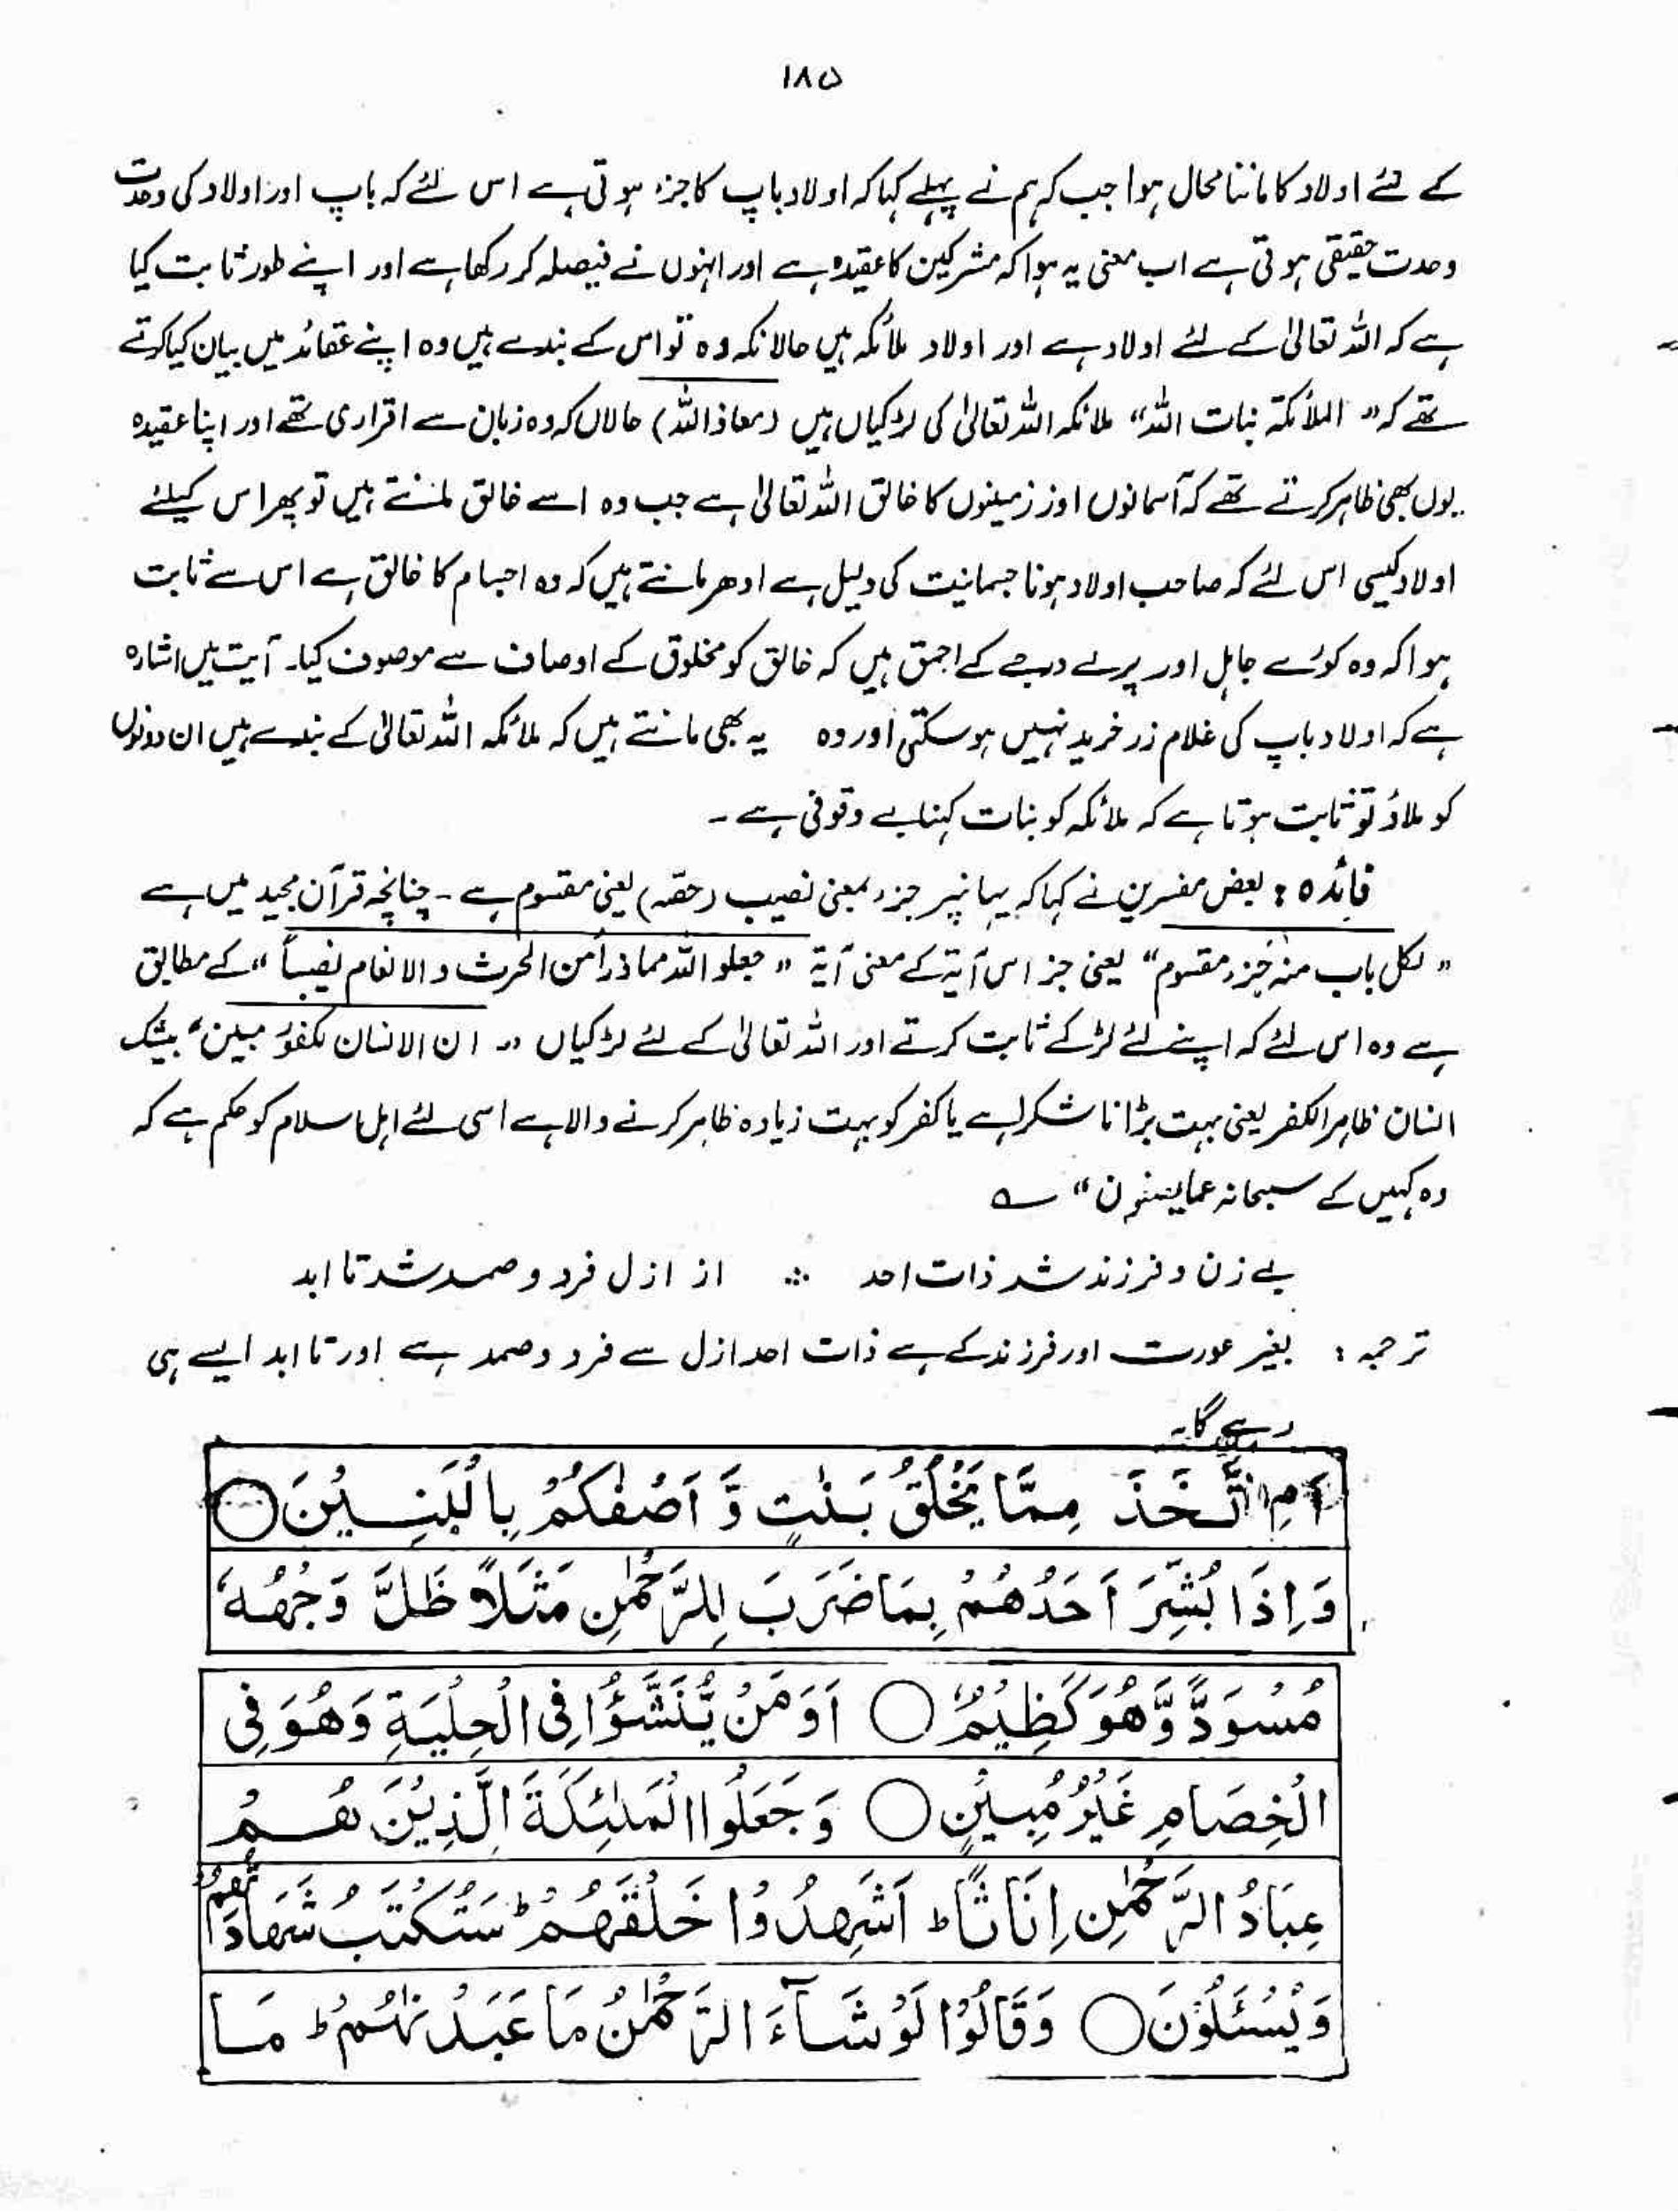 ۱۸۵
کے لئے اولاد کا ماننا محال ہوا جب کہ ہم نے پہلے کہا کہ اولاد باپ کا جزء ہوتی ہے اس لئے کہ باپ اور اولاد کی وحدت
وحدت حقیقی ہوتی ہے اب معنی یہ ہوا کہ مشرکین کا عقیدہ ہے اور انہوں نے فیصلہ کر رکھا ہے اور اپنے طور ثابت کیا
ہے کہ اللہ تعالیٰ کے لئے اولاد ہے اور اولاد ملائکہ ہیں حالانکہ وہ تو اس کے بندے ہیں وہ اپنے عقائد میں بیان کیا کرتے
تھے کہ " الملائکۃ بنات اللہ" ملائکہ اللہ تعالیٰ کی لڑکیاں ہیں (معاذ اللہ) حالاں کہ وہ زبان سے اقراری تھے اور اپنا عقیدہ
یوں بھی ظاہر کرتے تھے کہ آسمانوں اور زمینوں کا خالق اللہ تعالیٰ ہے جب وہ اسے خالق مانتے ہیں تو پھر اس کیلئے
اولاد کیسی اس لئے کہ صاحب اولاد ہونا جسمانیت کی دلیل ہے ادھر مانتے ہیں کہ وہ اجسام کا خالق ہے اس سے ثابت
ہوا کہ وہ کورے جاہل اور پرلے درجے کے احمق ہیں کہ خالق کو مخلوق کے اوصاف سے موصوف کیا۔ آیت میں اشارہ
ہے کہ اولاد باپ کی غلام زر خرید نہیں ہوسکتی اور وہ یہ بھی مانتے ہیں کہ ملائکہ اللہ تعالیٰ کے بندے ہیں ان دونوں
کو ملاؤ تو ثابت ہوتا ہے کہ ملائکہ کو بنات کہنا بے وقوفی ہے ۔
فائدہ : بعض مفسرین نے کہا کہ یہانپر جزء بمعنی نصیب (حصّہ) یعنی مقسوم ہے ۔ چنانچہ قرآن مجید میں ہے
" لکل باب منہم جزء مقسوم" یعنی جز اس آیۃ کے معنی آیۃ " جعلو اللہ مما ذرأ من الحرث والانعام نصیباً " کے مطابق
ہے وہ اس لئے کہ اپنے لئے لڑکے ثابت کرتے اور اللہ تعالیٰ کے لئے لڑکیاں " ان الانسان لکفورٌ مبین" بیشک
انسان ظاہر الکفر یعنی بہت بڑا ناشکرا ہے یا کفر کو بہت زیادہ ظاہر کرنے والا ہے اسی لئے اہل اسلام کو حکم ہے کہ
وہ کہیں کے سبحانہ عما یصفون"
بے زن و فرزند شد ذات احد ∴ از ازل فرد و صمد شد تا ابد
ترجمہ : بغیر عورت اور فرزند کے ہے ذات احد ازل سے فرد وصمد ہے اور تا ابد ایسے ہی
رہے گا۔
اَمِ اتَّخَذَ مِمَّا يَخْلُقُ بَنٰتٍ وَّ اَصْفٰكُمْ بِالْبَنِيْنَ ○
وَاِذَا بُشِّرَ اَحَدُهُمْ بِمَا ضَرَبَ لِلرَّحْمٰنِ مَثَلًا ظَلَّ وَجْهُهٗ
مُسْوَدًّا وَّهُوَ كَظِيْمٌ ○ اَوَمَنْ يُّنَشَّؤُا فِي الْحِلْيَةِ وَهُوَ فِي
الْخِصَامِ غَيْرُ مُبِيْنٍ ○ وَجَعَلُوا الْمَلٰئِكَةَ الَّذِيْنَ هُمْ
عِبَادُ الرَّحْمٰنِ اِنَاثًا ط اَشَهِدُوْا خَلْقَهُمْ ط سَتُكْتَبُ شَهَادَتُهُمْ
وَيُسْئَلُوْنَ ○ وَقَالُوْا لَوْ شَآءَ الرَّحْمٰنُ مَا عَبَدْنٰهُمْ ط مَا